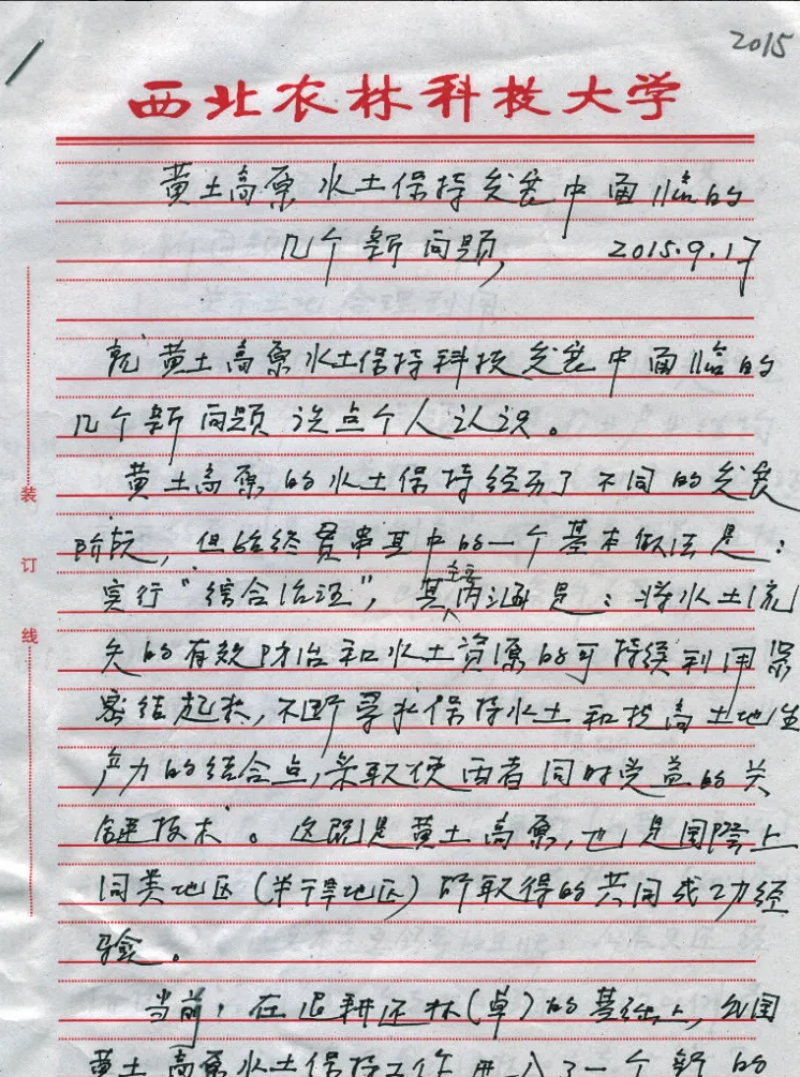 2015
西北农林科技大学
黄土高原水土保持发展中面临的
几个新问题, 2015.9.17
就黄土高原水土保持科技发展中面临的
几个新问题谈点个人认识。
黄土高原的水土保持经历了不同的发展
阶段,但始终贯串其中的一个基本做法是:
实行“综合治理”,其主要内涵是:将水土流
失的有效防治和水土资源的可持续利用紧
密结起来,不断寻求保持水土和提高土地生
产力的结合点,采取使两者同时受益的关
键技术。这既是黄土高原,也是国际上
同类地区(半干旱地区)所取得的共同成功经
验。
当前,在退耕还林(草)的基础上,我国
黄土高原水土保持工作进入了一个新的
装
订
线